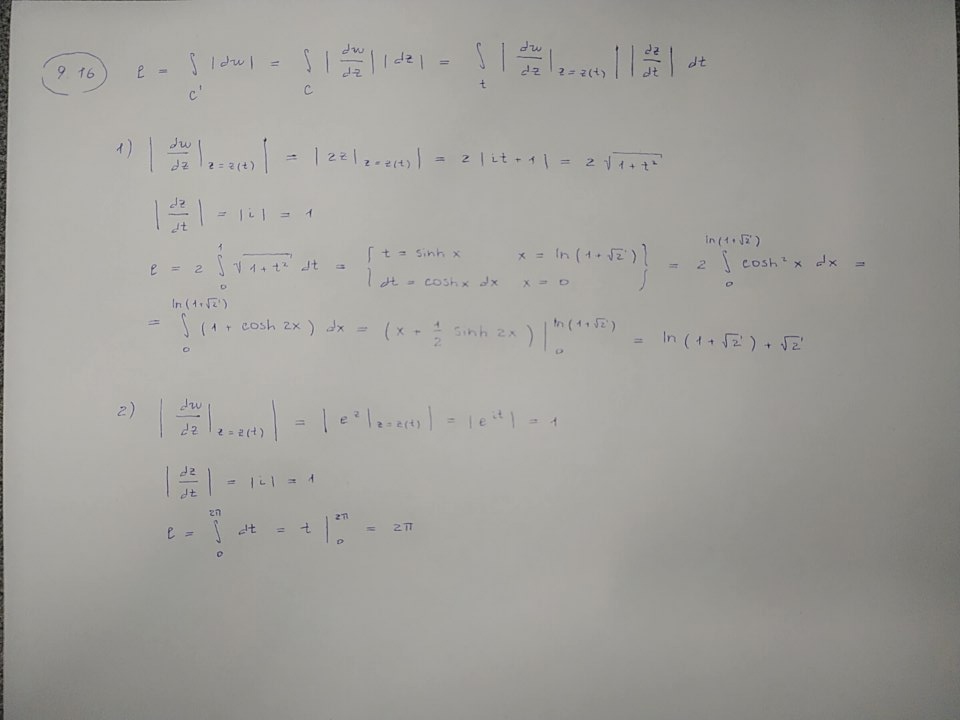 9.16 ℓ = ∫_{C'} |dw| = ∫_{C} |dw/dz| |dz| = ∫_{t} | dw/dz |_{z=z(t)} | |dz/dt| dt
1) | dw/dz |_{z=z(t)} | = | 2z|_{z=z(t)} | = 2 |it + 1| = 2 √(1+t²)
|dz/dt| = |i| = 1
ℓ = 2 ∫_0^1 √(1+t²) dt = { t = sinh x x = ln(1+√2) dt = cosh x dx x = 0 } = 2 ∫_0^{ln(1+√2)} cosh² x dx =
= ∫_0^{ln(1+√2)} (1 + cosh 2x) dx = (x + 1/2 sinh 2x) |_0^{ln(1+√2)} = ln(1+√2) + √2
2) | dw/dz |_{z=z(t)} | = | e^z |_{z=z(t)} | = |e^{it}| = 1
|dz/dt| = |i| = 1
ℓ = ∫_0^{2π} dt = t |_0^{2π} = 2π